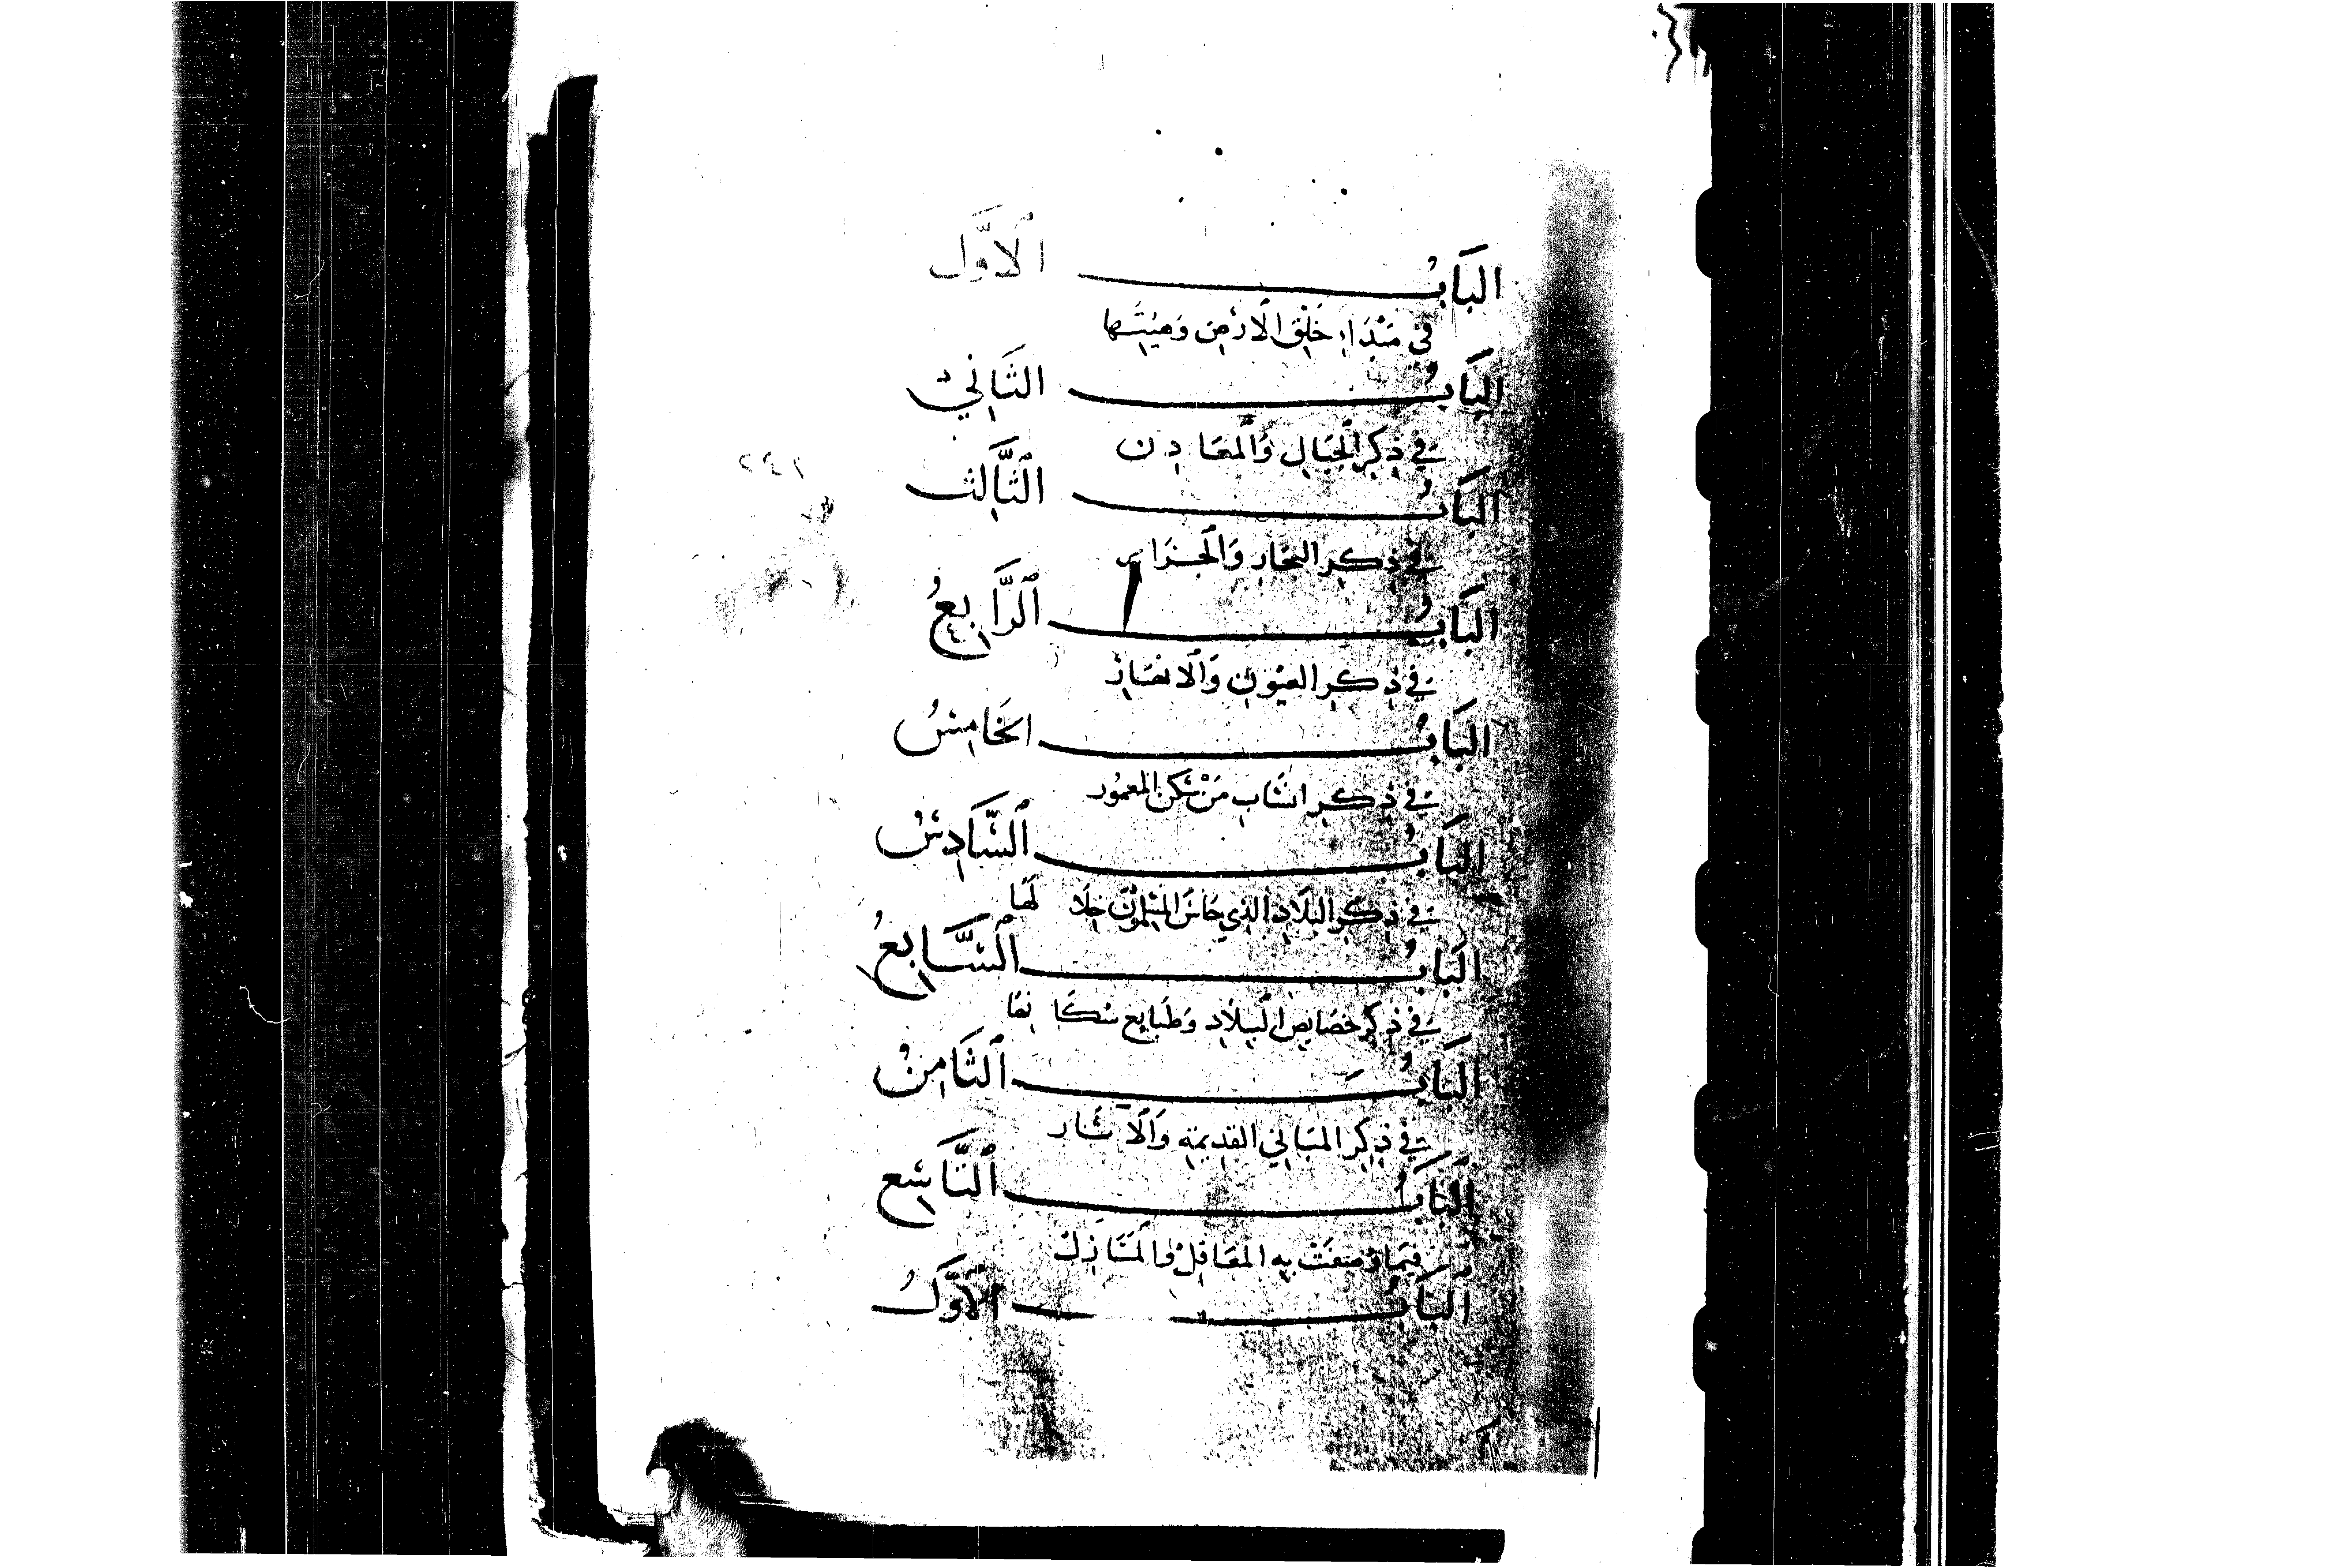 البَابُ الأَوَّل
في مَبْدَاءِ خَلْقِ الأرْضِ وَهَيْئَتِها
البَابُ الثَّانِي
في ذِكِر الجِبَالِ وَالمعَادِن
٢٤١
البَابُ الثَّالِث
في ذِكرِ البحَارِ وَالجزَاير
البَابُ الرَّابِعُ
في ذِكرِ العُيُونِ وَالانهَارْ
البَابُ الخَامِسُ
في ذِكرِ انسَابِ مَنْ سَكن المعمُور
البَابُ السَّادِسُ
في ذِكرِ البلَادِ الذِي جَاسَ المسْلمُونَ خِلَا لَهَا
البَابُ السَّابِعُ
في ذِكرِ خصَايصِ البِلَادِ وَطبَايعِ سُكَّا نِهَا
البَابُ الثَّامِنُ
في ذِكِر المبَانِي القدِيمَةِ وَالآثَار
البَابُ التَّاسِع
فِيمَا وُصِفَتْ بِهِ المعَاقِلُ وَالمنَازِلُ
البَابُ الأَوَّلُ